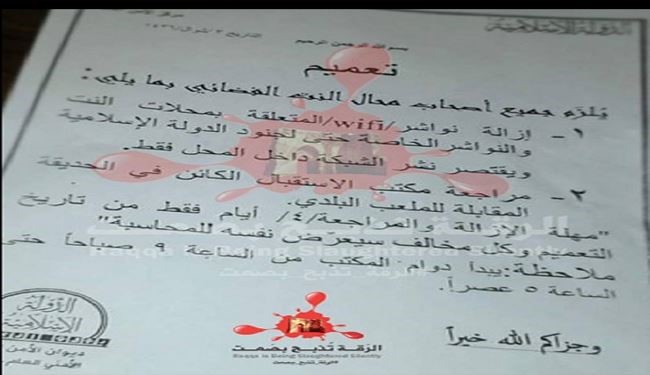 الدولة الإسلامية
بسم الله الرحمن الرحيم
تعميم
يلزم جميع أصحاب محال النت الفضائي بما يلي:
١- إزالة نواشر/wifi/المتعلقة بمحلات النت
والنواشر الخاصة حتى لجنود الدولة الإسلامية
ويقتصر نشر الشبكة داخل المحل فقط.
٢- مراجعة مكتب الاستقبال الكائن في الحديقة
المقابلة للملعب البلدي.
"مهلة الإزالة والمراجعة/٤/ أيام فقط من تاريخ
التعميم وكل مخالف سيعرّض نفسه للمحاسبة"
ملاحظة: يبدأ دوام المكتب من الساعة ٩ صباحاً حتى
الساعة ٥ عصراً.
وجزاكم الله خيراً
الدولة
الإسلامية
ديوان الأمن
الرقة تذبح بصمت
Raqqa is Being Slaughtered Silently
#الرقة_تذبح_بصمت
الرقة تذبح بصمت
Raqqa is Being Slaughtered Silently
#الرقة_تذبح_بصمت